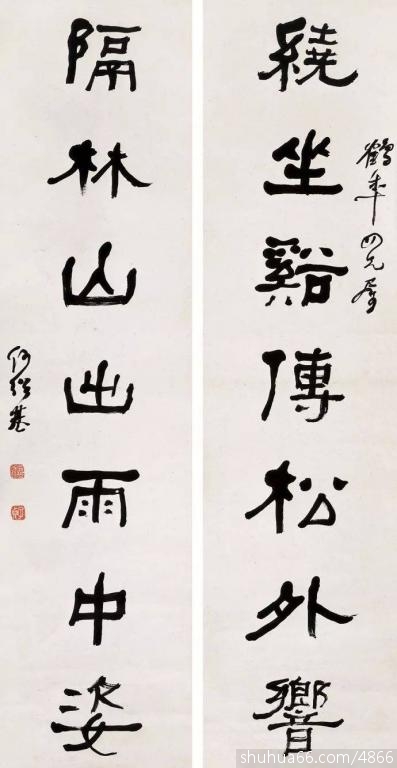 繞坐谿傳松外響
鶴年四兄屬
隔林山出雨中姿
何紹基
shuhua66.com/4866